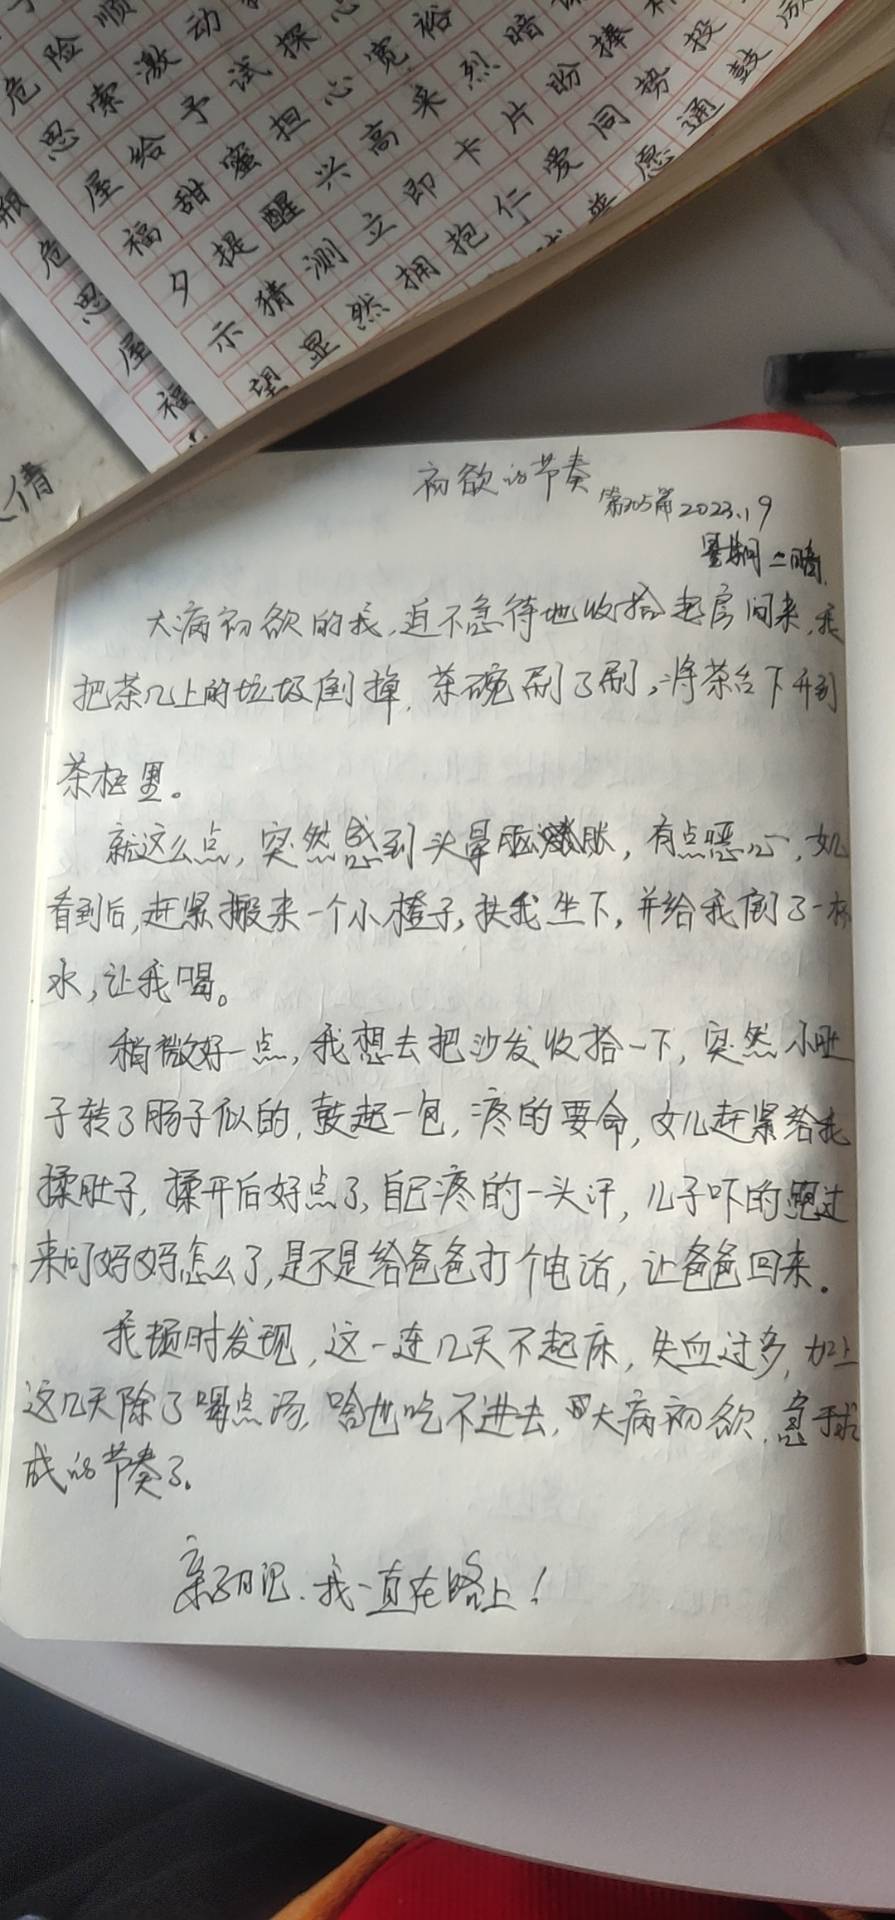 危险顺
思索激动
屋给予试探心
福甜蜜担心宽裕
夕提醒兴高采烈暗
示猜测立即卡片盼捧
望显然拥抱仁爱同势投
愿通鼓励
瓶
危
思
屋
福
倩
初欲的节奏
第305篇 2023.19
星期二晴
大病初欲的我,迫不急待地收拾起房间来,我
把茶几上的垃圾倒掉,茶碗刷了刷,将茶台下
茶柜里。
就这么点,突然感到头晕脑胀,有点恶心,女儿
看到后,赶紧搬来一个小橙子,扶我坐下,并给我倒了一杯
水,让我喝。
稍微好一点,我想去把沙发收拾一下,突然小肚
子转了肠子似的,鼓起一包,疼的要命,女儿赶紧给我
揉肚子,揉开后好点了,自己疼的一头汗,儿子吓的跑过
来问妈妈怎么了,是不是给爸爸打个电话,让爸爸回来。
我顿时发现,这一连几天不起床,失血过多,加上
这几天除了喝点汤,啥也吃不进去,大病初欲,急于求
成的节奏了。
亲子日记.我一直在路上!